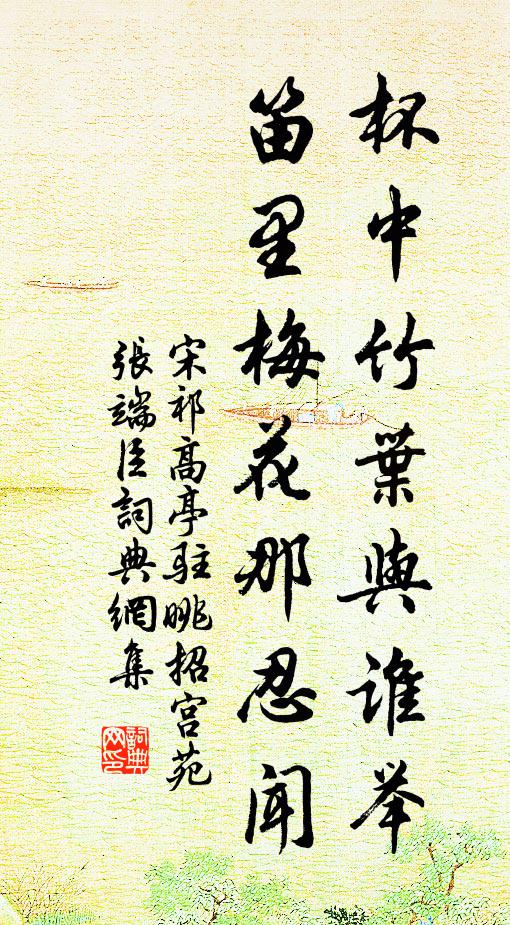 杯中竹葉與誰举
笛里梅花那忍闻
宋祁高亭駐眺招宫苑
張端臣詞典網集
詞典
网印